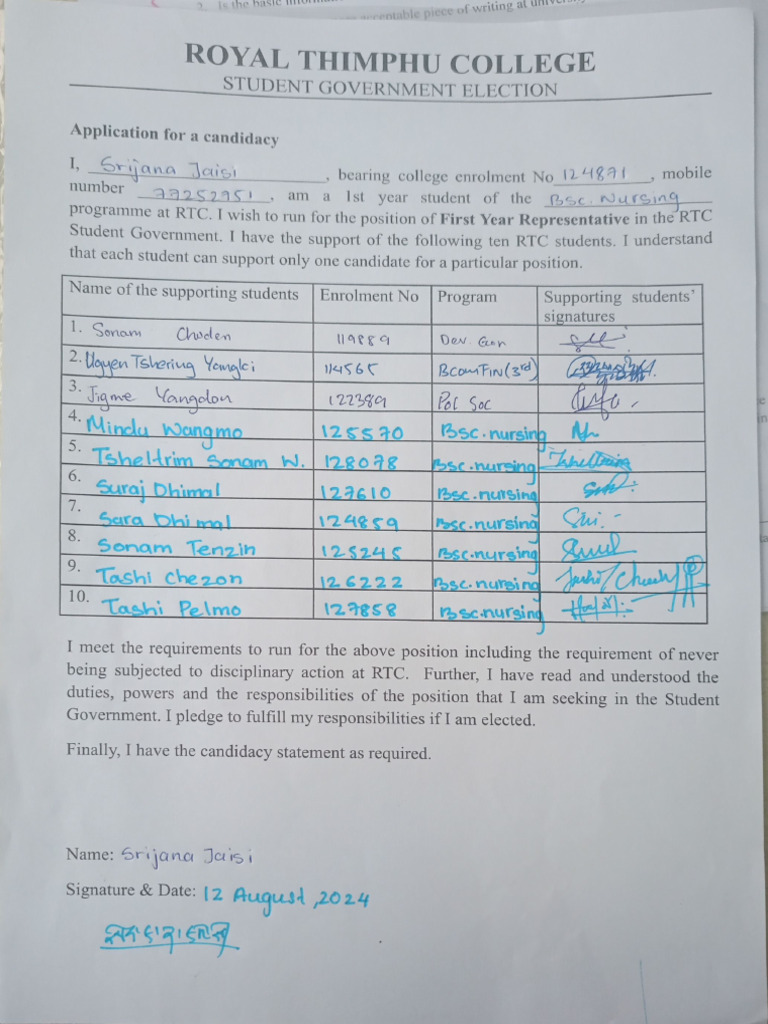 2. Is the basic
acceptable piece of writing at
ROYAL THIMPHU COLLEGE
STUDENT GOVERNMENT ELECTION
Application for a candidacy
I, Srijana Jaisi, bearing college enrolment No 124871, mobile
number 77252951, am a 1st year student of the Bsc. Nursing
programme at RTC. I wish to run for the position of First Year Representative in the RTC
Student Government. I have the support of the following ten RTC students. I understand
that each student can support only one candidate for a particular position.
Name of the supporting students Enrolment No Program Supporting students'
signatures
1. Sonam Choden 119889 Dev. Econ
2. Ugyen Tshering Yangki 114565 BcomFIN(3rd)
3. Jigme Yangdon 122389 Pol Soc
4. Mindu Wangmo 125570 Bsc.nursing
5. Tsheltrim Sonam W. 128078 Bsc.nursing Tsheltrim
6. Suraj Dhimal 127610 Bsc.nursing
7. Sara Dhimal 124859 Bsc.nursing
8. Sonam Tenzin 125245 Bsc.nursing
9. Tashi Chezon 126222 Bsc.nursing
10. Tashi Pelmo 127858 Bsc.nursing
I meet the requirements to run for the above position including the requirement of never
being subjected to disciplinary action at RTC. Further, I have read and understood the
duties, powers and the responsibilities of the position that I am seeking in the Student
Government. I pledge to fulfill my responsibilities if I am elected.
Finally, I have the candidacy statement as required.
Name: Srijana Jaisi
Signature & Date: 12 August, 2024